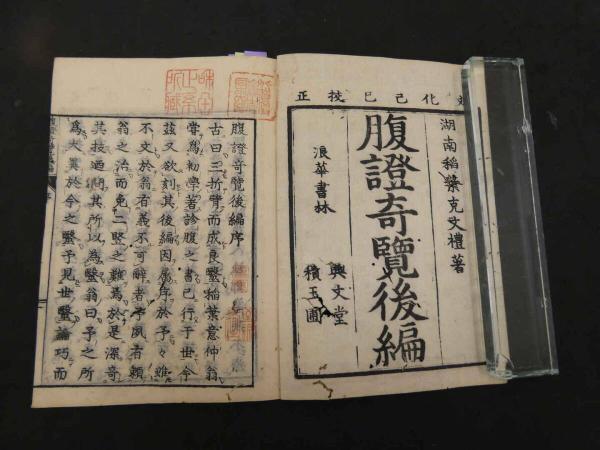 化己巳挍正
湖南稲葉克文禮著
腹證奇覽後編
浪華書林
興文堂
積玉圃
腹證奇覽後編序
古曰三折臂而成良毉稲葉意仲翁
嘗爲初學著診腹之書已行于世今
茲又欲刻其後編因属序於予々雖
不文於翁有義不可辭者予夙者頼
翁之治而免二竪之難焉於是深奇
其技過問其所以為毉翁曰予之所
爲大異於今之毉予見世毉論巧而